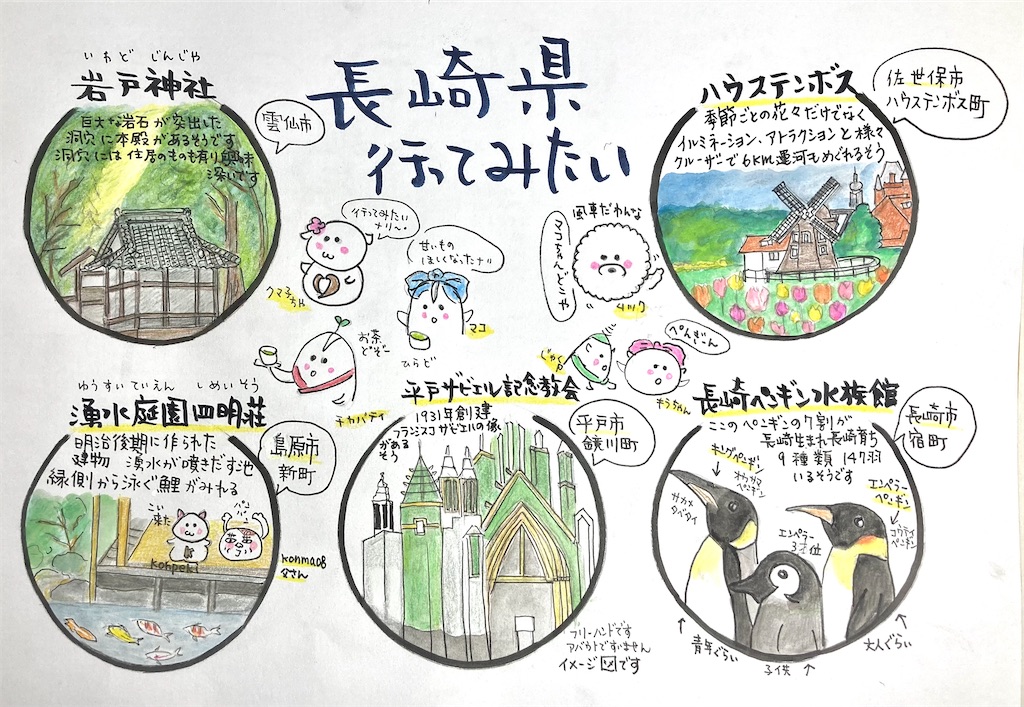 長崎県
行ってみたい
いわど じんじゃ
岩戸神社
雲仙市
巨大な岩石が突出した
洞穴に本殿があるそうです
洞穴には住居のものも有り興味
深いです
ハウステンボス
佐世保市
ハウステンボス町
季節ごとの花々だけでなく
イルミネーション、アトラクションと様々
クルーザーで6km運河もめぐれるそう
行ってみたい
ナリ〜。
クマ子ちゃん
甘いもの
ほしくなったナリ
マコ
風車だわんな
マコちゃんどこや
お茶
どぞー
チカパティ
じゃくろ
ぺんぎん
キラちゃん
ゆうすいていえん しめいそう
湧水庭園四明荘
島原市
新町
明治後期に作られた
建物 湧水が噴きだす池
縁側から泳ぐ鯉がみれる
こい
来た
パン
パン
konpeki
konma08
父さん
ひらど
平戸ザビエル記念教会
平戸市
鏡川町
1931年創建
フランシスコザビエルの像
がある
そう
フリーハンドです
アバウトですいません
イメージ図です
長崎ペンギン水族館
長崎市
宿町
ここのペンギンの7割が
長崎生まれ長崎育ち
9種類 147羽
いるそうです
キングペンギン
オウサマ
ペンギン
サカナ
タベタイ
エンペラー
ペンギン
コウテイ
ペンギン
エンペラー
3才位
青年ぐらい
子供
大人ぐらい